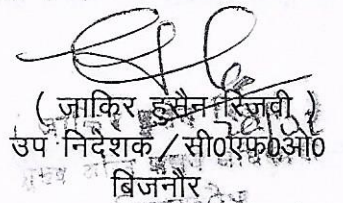 ( जाकिर हुसैन रिजवी )
उप निदेशक / सी0एफ0ओ0
बिजनौर